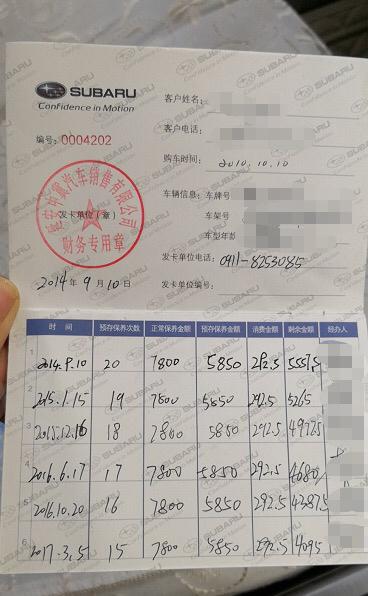 SUBARU
Confidence in Motion
编号:0004202
客户姓名:
客户电话:
购车时间: 2010.10.10
车辆信息: 车牌号
车架号
车型年款
发卡单位电话: 0911-8253085
发卡单位编号:
发卡单位(章)
延安中冀汽车销售有限公司
财务专用章
2014年9月10日
时间 预存保养次数 正常保养金额 预存保养金额 消费金额 剩余金额 经办人
1 2014.9.10 20 7800 5850 292.5 5557.5
2 2015.1.15 19 7800 5850 292.5 5265
3 2015.12.16 18 7800 5850 292.5 4972.5
4 2016.6.17 17 7800 5850 292.5 4680
5 2016.10.20 16 7800 5850 292.5 4387.5
6 2017.3.5 15 7800 5850 292.5 4095